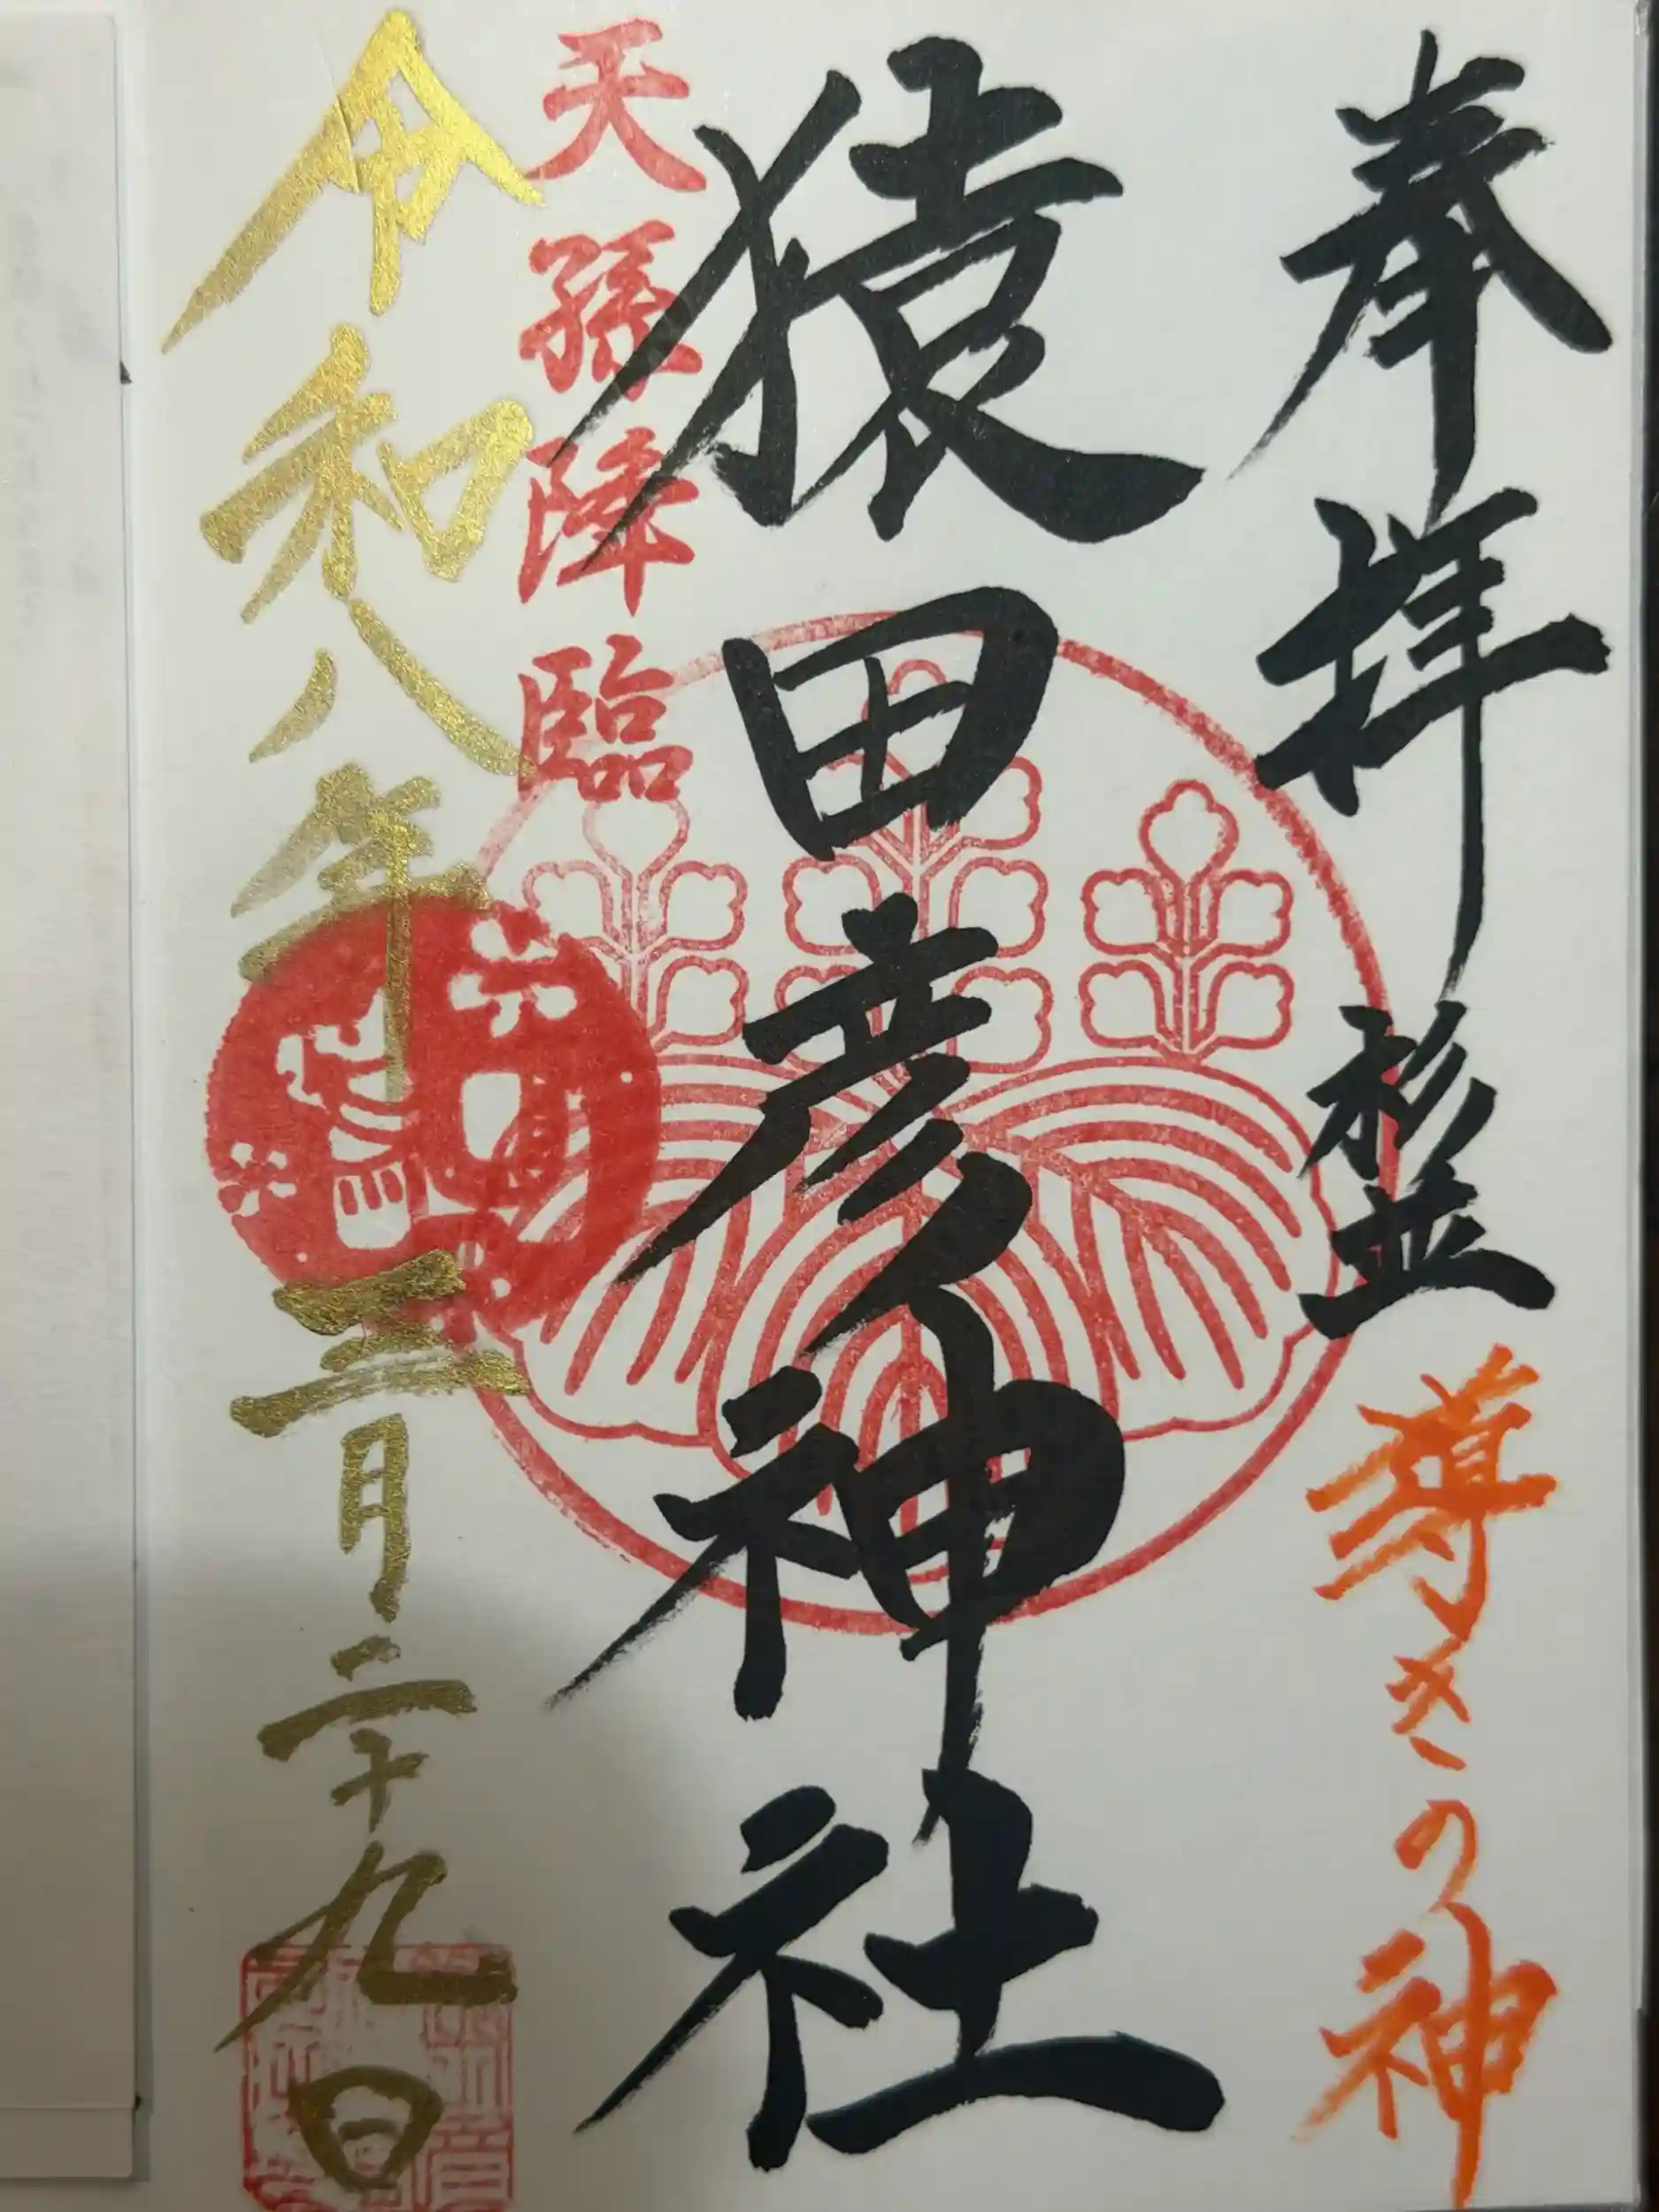 奉拝
杉並
導きの神
猿田彦神社
天孫降臨
令和八年三月二十九日